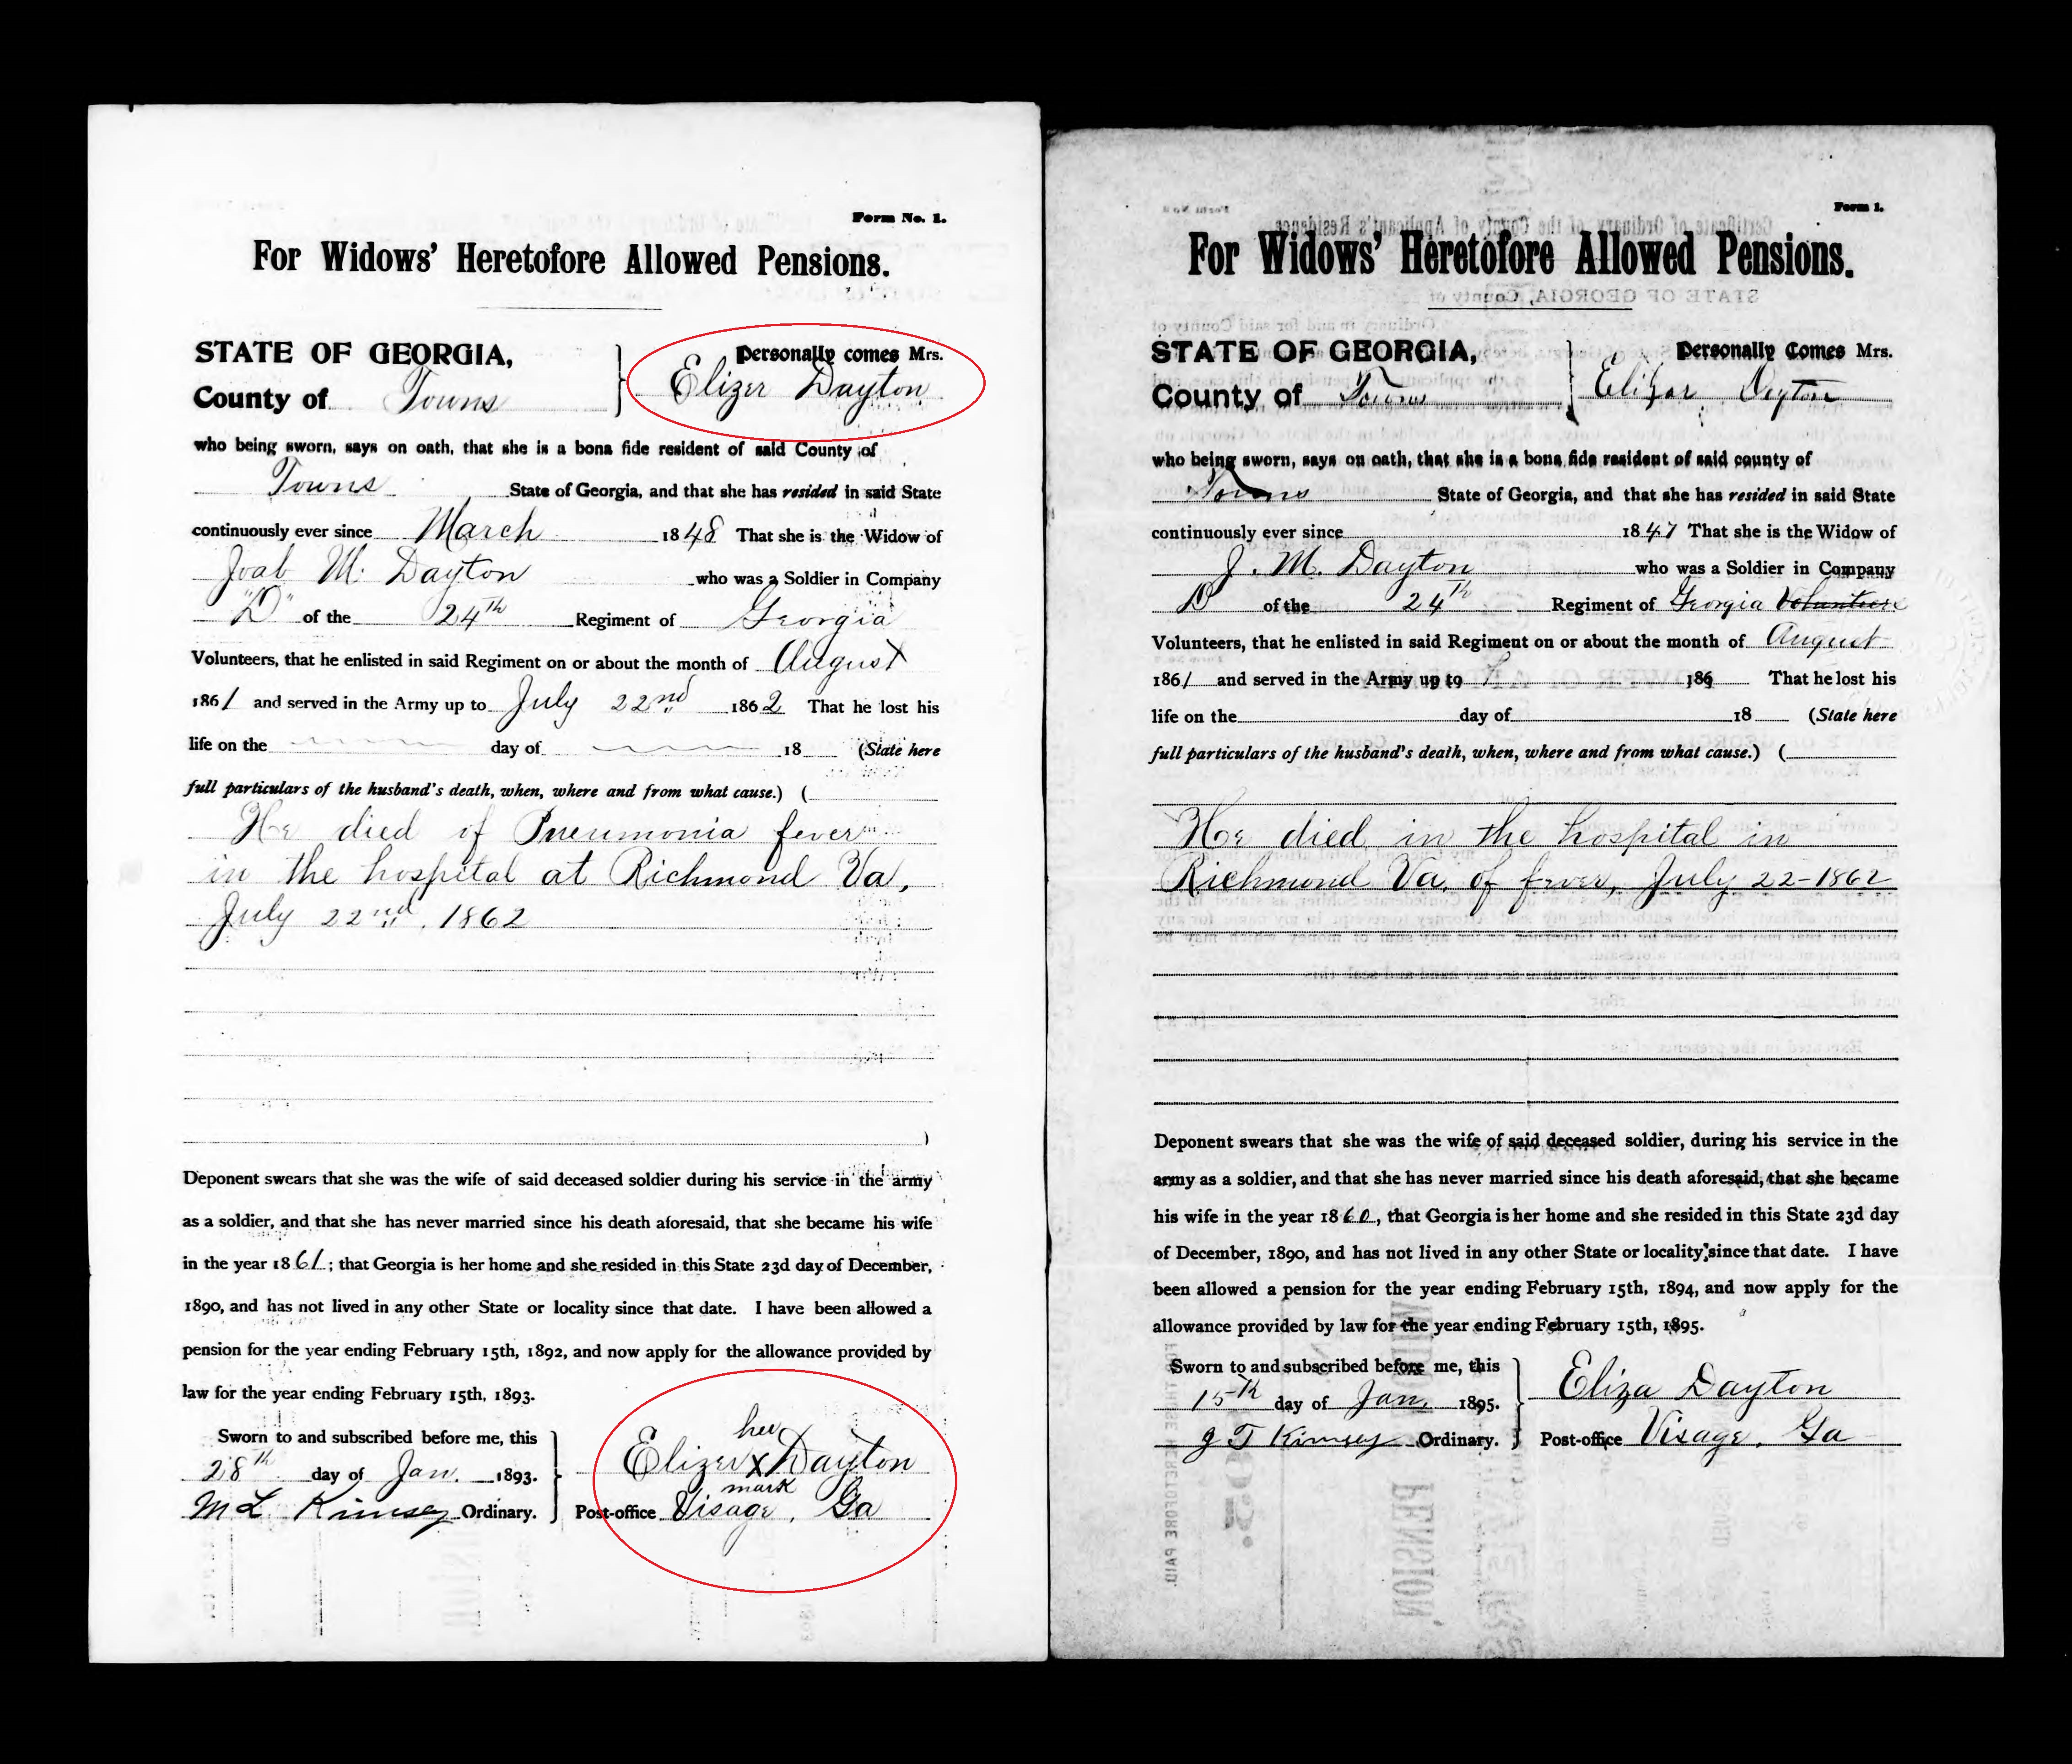 Form No. 1.
For Widows' Heretofore Allowed Pensions.
STATE OF GEORGIA,
County of Towns
Personally comes Mrs.
Elizer Dayton
who being sworn, says on oath, that she is a bona fide resident of said County of
Towns State of Georgia, and that she has resided in said State
continuously ever since March 1848 That she is the Widow of
Joab M. Dayton who was a Soldier in Company
"D" of the 24th Regiment of Georgia
Volunteers, that he enlisted in said Regiment on or about the month of August
1861 and served in the Army up to July 22nd 1862 That he lost his
life on the day of 18 (State here
full particulars of the husband's death, when, where and from what cause.) (
He died of Pneumonia fever
in the hospital at Richmond Va,
July 22nd, 1862
)
Deponent swears that she was the wife of said deceased soldier during his service in the army
as a soldier, and that she has never married since his death aforesaid, that she became his wife
in the year 1861; that Georgia is her home and she resided in this State 23d day of December,
1890, and has not lived in any other State or locality since that date. I have been allowed a
pension for the year ending February 15th, 1892, and now apply for the allowance provided by
law for the year ending February 15th, 1893.
Sworn to and subscribed before me, this
28th day of Jan. 1893.
M L Kimsey Ordinary.
her
Elizer X Dayton
mark
Post-office Visage, Ga
Form 1.
For Widows' Heretofore Allowed Pensions.
STATE OF GEORGIA,
County of Towns
Personally Comes Mrs.
Elizar Deyton
who being sworn, says on oath, that she is a bona fide resident of said county of
Towns State of Georgia, and that she has resided in said State
continuously ever since 1847 That she is the Widow of
J. M. Dayton who was a Soldier in Company
D of the 24th Regiment of Georgia Volunteers
Volunteers, that he enlisted in said Regiment on or about the month of August
1861 and served in the Army up to 186 That he lost his
life on the day of 18 (State here
full particulars of the husband's death, when, where and from what cause.) (
He died in the hospital in
Richmond Va, of fever, July 22-1862
Deponent swears that she was the wife of said deceased soldier, during his service in the
army as a soldier, and that she has never married since his death aforesaid, that she became
his wife in the year 1860, that Georgia is her home and she resided in this State 23d day
of December, 1890, and has not lived in any other State or locality since that date. I have
been allowed a pension for the year ending February 15th, 1894, and now apply for the
allowance provided by law for the year ending February 15th, 1895.
Sworn to and subscribed before me, this
15th day of Jan, 1895.
J T Kimsey Ordinary.
Eliza Dayton
Post-office Visage, Ga